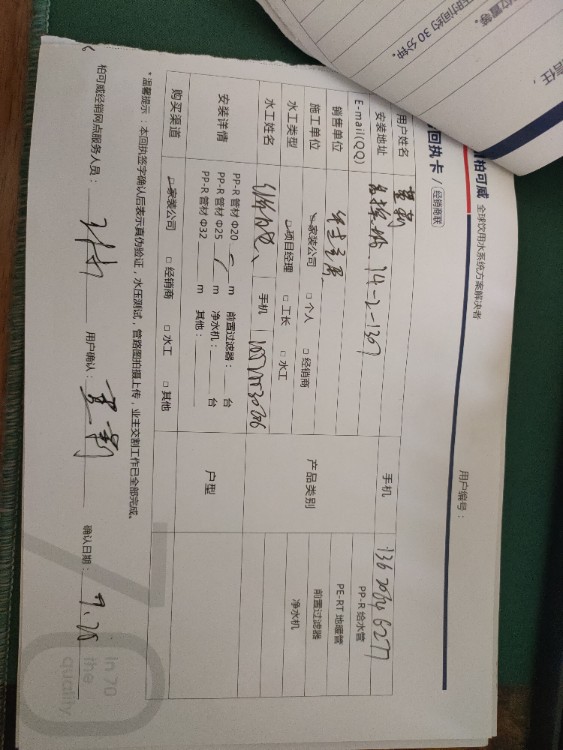 位置等。
压时间约 30 分钟。
责任，
柏可威 全球饮用水系统方案解决者
回执卡 / 经销商联
用户编号：
用户姓名 手机 136 2064 6277
安装地址 14-2-1307
E-mail(QQ)
销售单位
施工单位 □家装公司 □个人 □经销商
产品类别
PP-R 给水管
PE-RT 地暖管
前置过滤器
净水机
水工类型 □项目经理 □工长 □水工
水工姓名 手机
安装详情
PP-R 管材 Φ20 m 前置过滤器： 台
PP-R 管材 Φ25 m 净水机： 台
PP-R 管材 Φ32 m 其他：
户型
购买渠道 □家装公司 □经销商 □水工 □其他
*温馨提示：本回执签字确认后表示真伪验证，水压测试，管路图拍摄上传，业主交割工作已全部完成。
柏可威经销网点服务人员： 用户确认： 确认日期： 9.28
70
In 70
the
quality